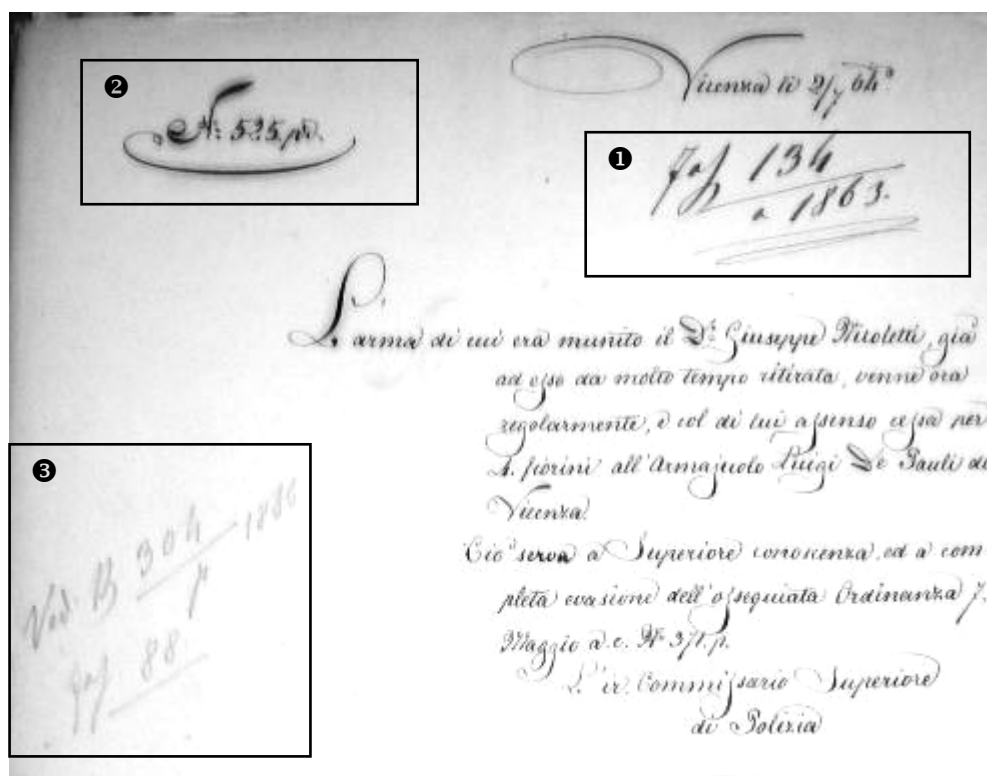 Vicenza li 2/7 64.
❷
N.° 525 pr.
❶
Fas 134
a 1863.
L'arma di cui era munito il D.r Giuseppe Nicoletti, già
ad esso da molto tempo ritirata, venne ora
regolarmente, e col di lui assenso cessa per
4. fiorini all'Armajuolo Luigi De Pauli di
Vicenza.
Ciò serva a Superiore conoscenza, ed a com
pleta evasione dell'ossequiata Ordinanza 7.
Maggio a. c. N.° 371. p.
L'ir. Commissario Superiore
di Polizia
❸
Ved. B 304 1886
p
fas 88